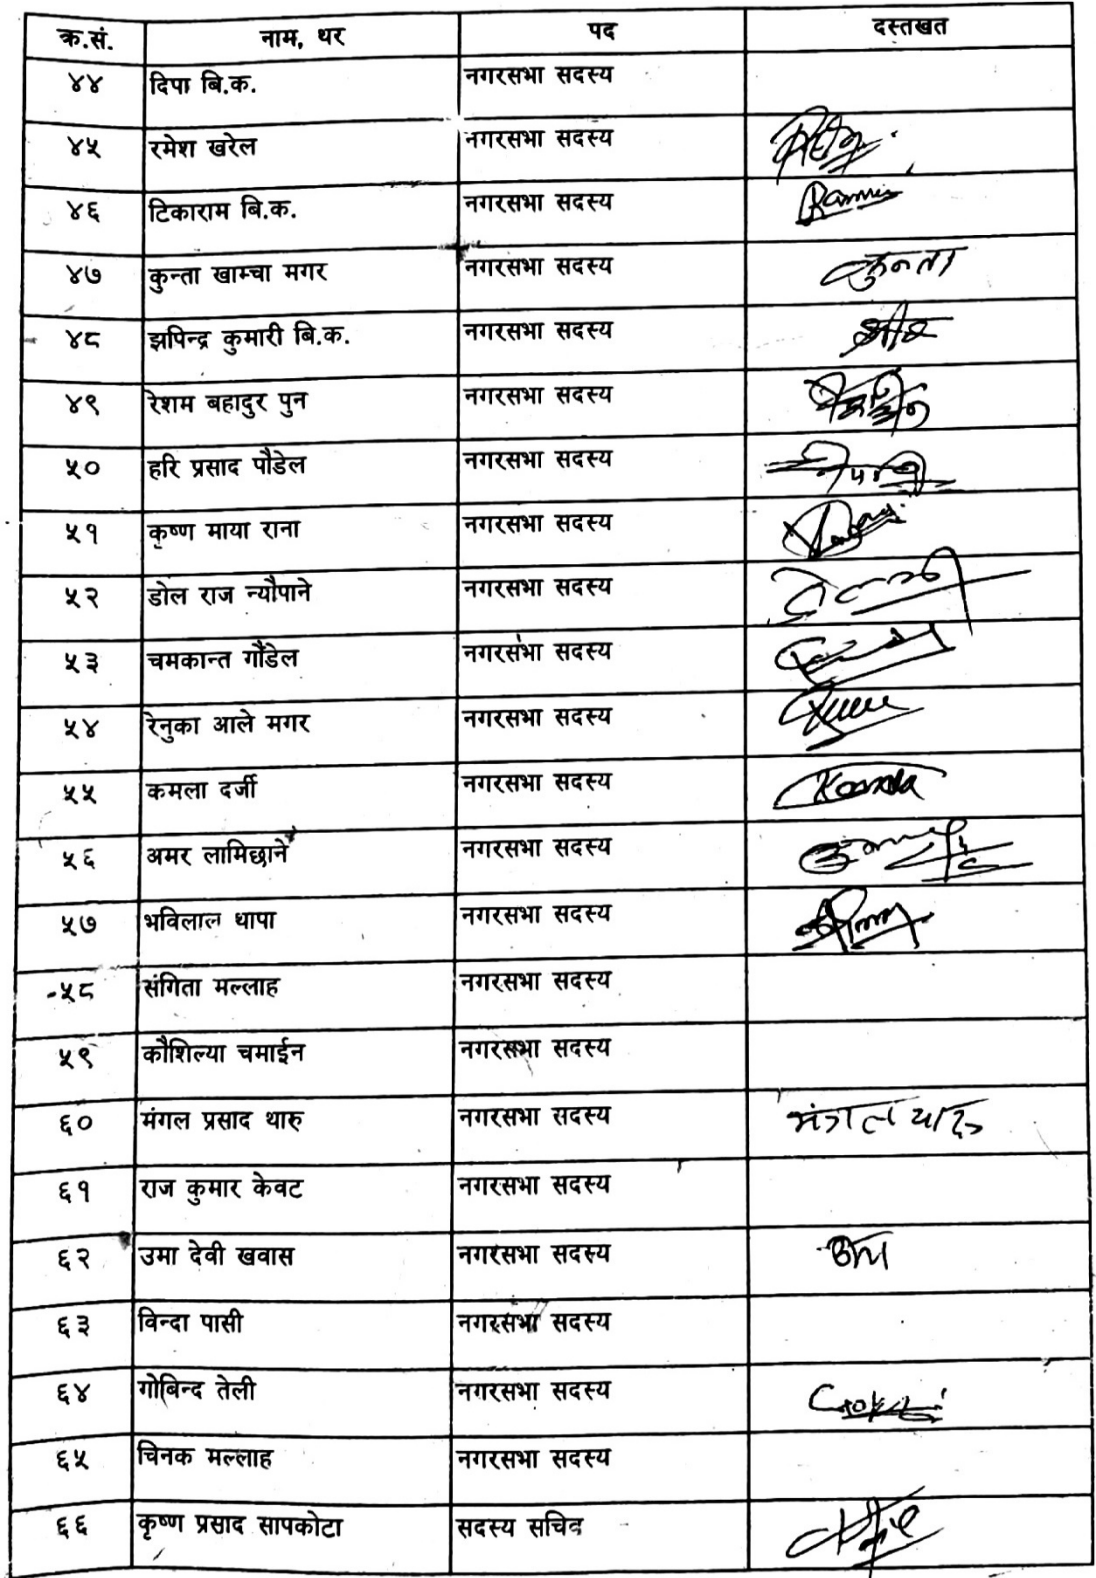 क्र.सं. नाम, थर पद दस्तखत
४४ दिपा बि.क. नगरसभा सदस्य
४५ रमेश खरेल नगरसभा सदस्य
४६ टिकाराम बि.क. नगरसभा सदस्य
४७ कुन्ता खाम्चा मगर नगरसभा सदस्य कुन्ता
४८ झपिन्द्र कुमारी बि.क. नगरसभा सदस्य
४९ रेशम बहादुर पुन नगरसभा सदस्य
५० हरि प्रसाद पौडेल नगरसभा सदस्य
५१ कृष्ण माया राना नगरसभा सदस्य
५२ डोल राज न्यौपाने नगरसभा सदस्य
५३ चमकान्त गौंडेल नगरसभा सदस्य
५४ रेनुका आले मगर नगरसभा सदस्य
५५ कमला दर्जी नगरसभा सदस्य
५६ अमर लामिछाने नगरसभा सदस्य
५७ भविलाल थापा नगरसभा सदस्य
५८ संगिता मल्लाह नगरसभा सदस्य
५९ कौशिल्या चमाईन नगरसभा सदस्य
६० मंगल प्रसाद थारु नगरसभा सदस्य मंगल
६१ राज कुमार केवट नगरसभा सदस्य
६२ उमा देवी खवास नगरसभा सदस्य
६३ विन्दा पासी नगरसभा सदस्य
६४ गोबिन्द तेली नगरसभा सदस्य
६५ चिनक मल्लाह नगरसभा सदस्य
६६ कृष्ण प्रसाद सापकोटा सदस्य सचिव